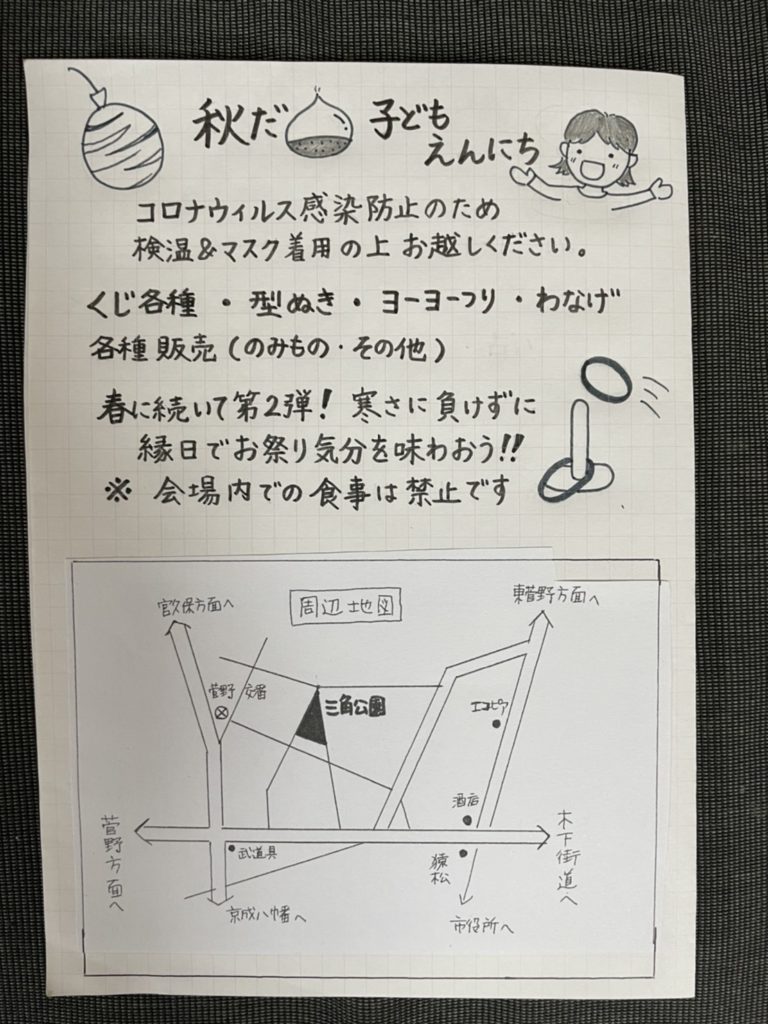 秋だ 子ども
えんにち
コロナウィルス感染防止のため
検温&マスク着用の上 お越しください。
くじ各種 ・ 型ぬき ・ ヨーヨーつり ・ わなげ
各種 販売 (のみもの・その他)
春に続いて第2弾! 寒さに負けずに
縁日でお祭り気分を味わおう!!
※ 会場内での食事は禁止です
周辺地図
宮久保方面へ
東菅野方面へ
菅野 交番
三角公園
エコピア
酒店
菅野方面へ
武道具
猿松
木下街道へ
京成八幡へ
市役所へ